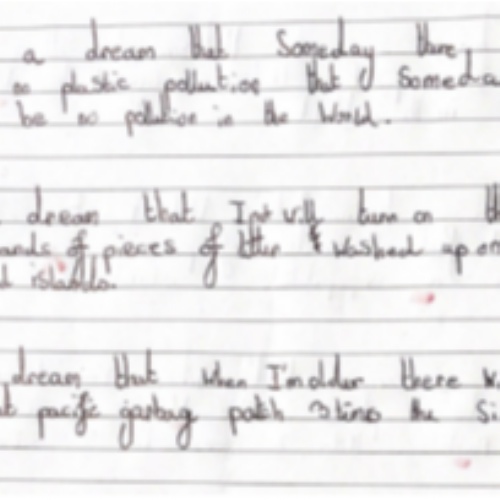 a dream that Someday there
no plastic pollution that Someda
be no pollution in the World.
dream that I will turn on th
ands of pieces of litter washed up on
islands.
dream that when I'm older there w
pacific garbag patch 3 times the Si